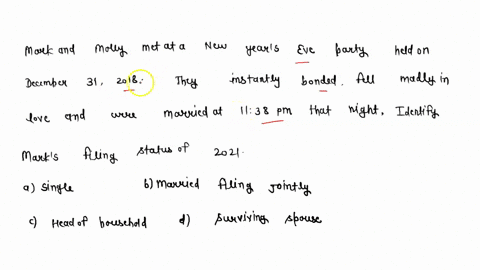 Mark and Molly met at a New year's Eve party held on
December 31, 2018. They instantly bonded, fell madly in
love and were married at 11:38 pm that night, Identify
Mark's filing status of 2021.
a) Single b) Married filing jointly
c) Head of household d) Surviving spouse